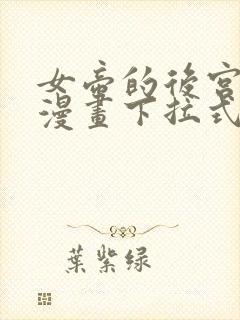 女帝的後宮
漫畫下拉式
葉紫绿